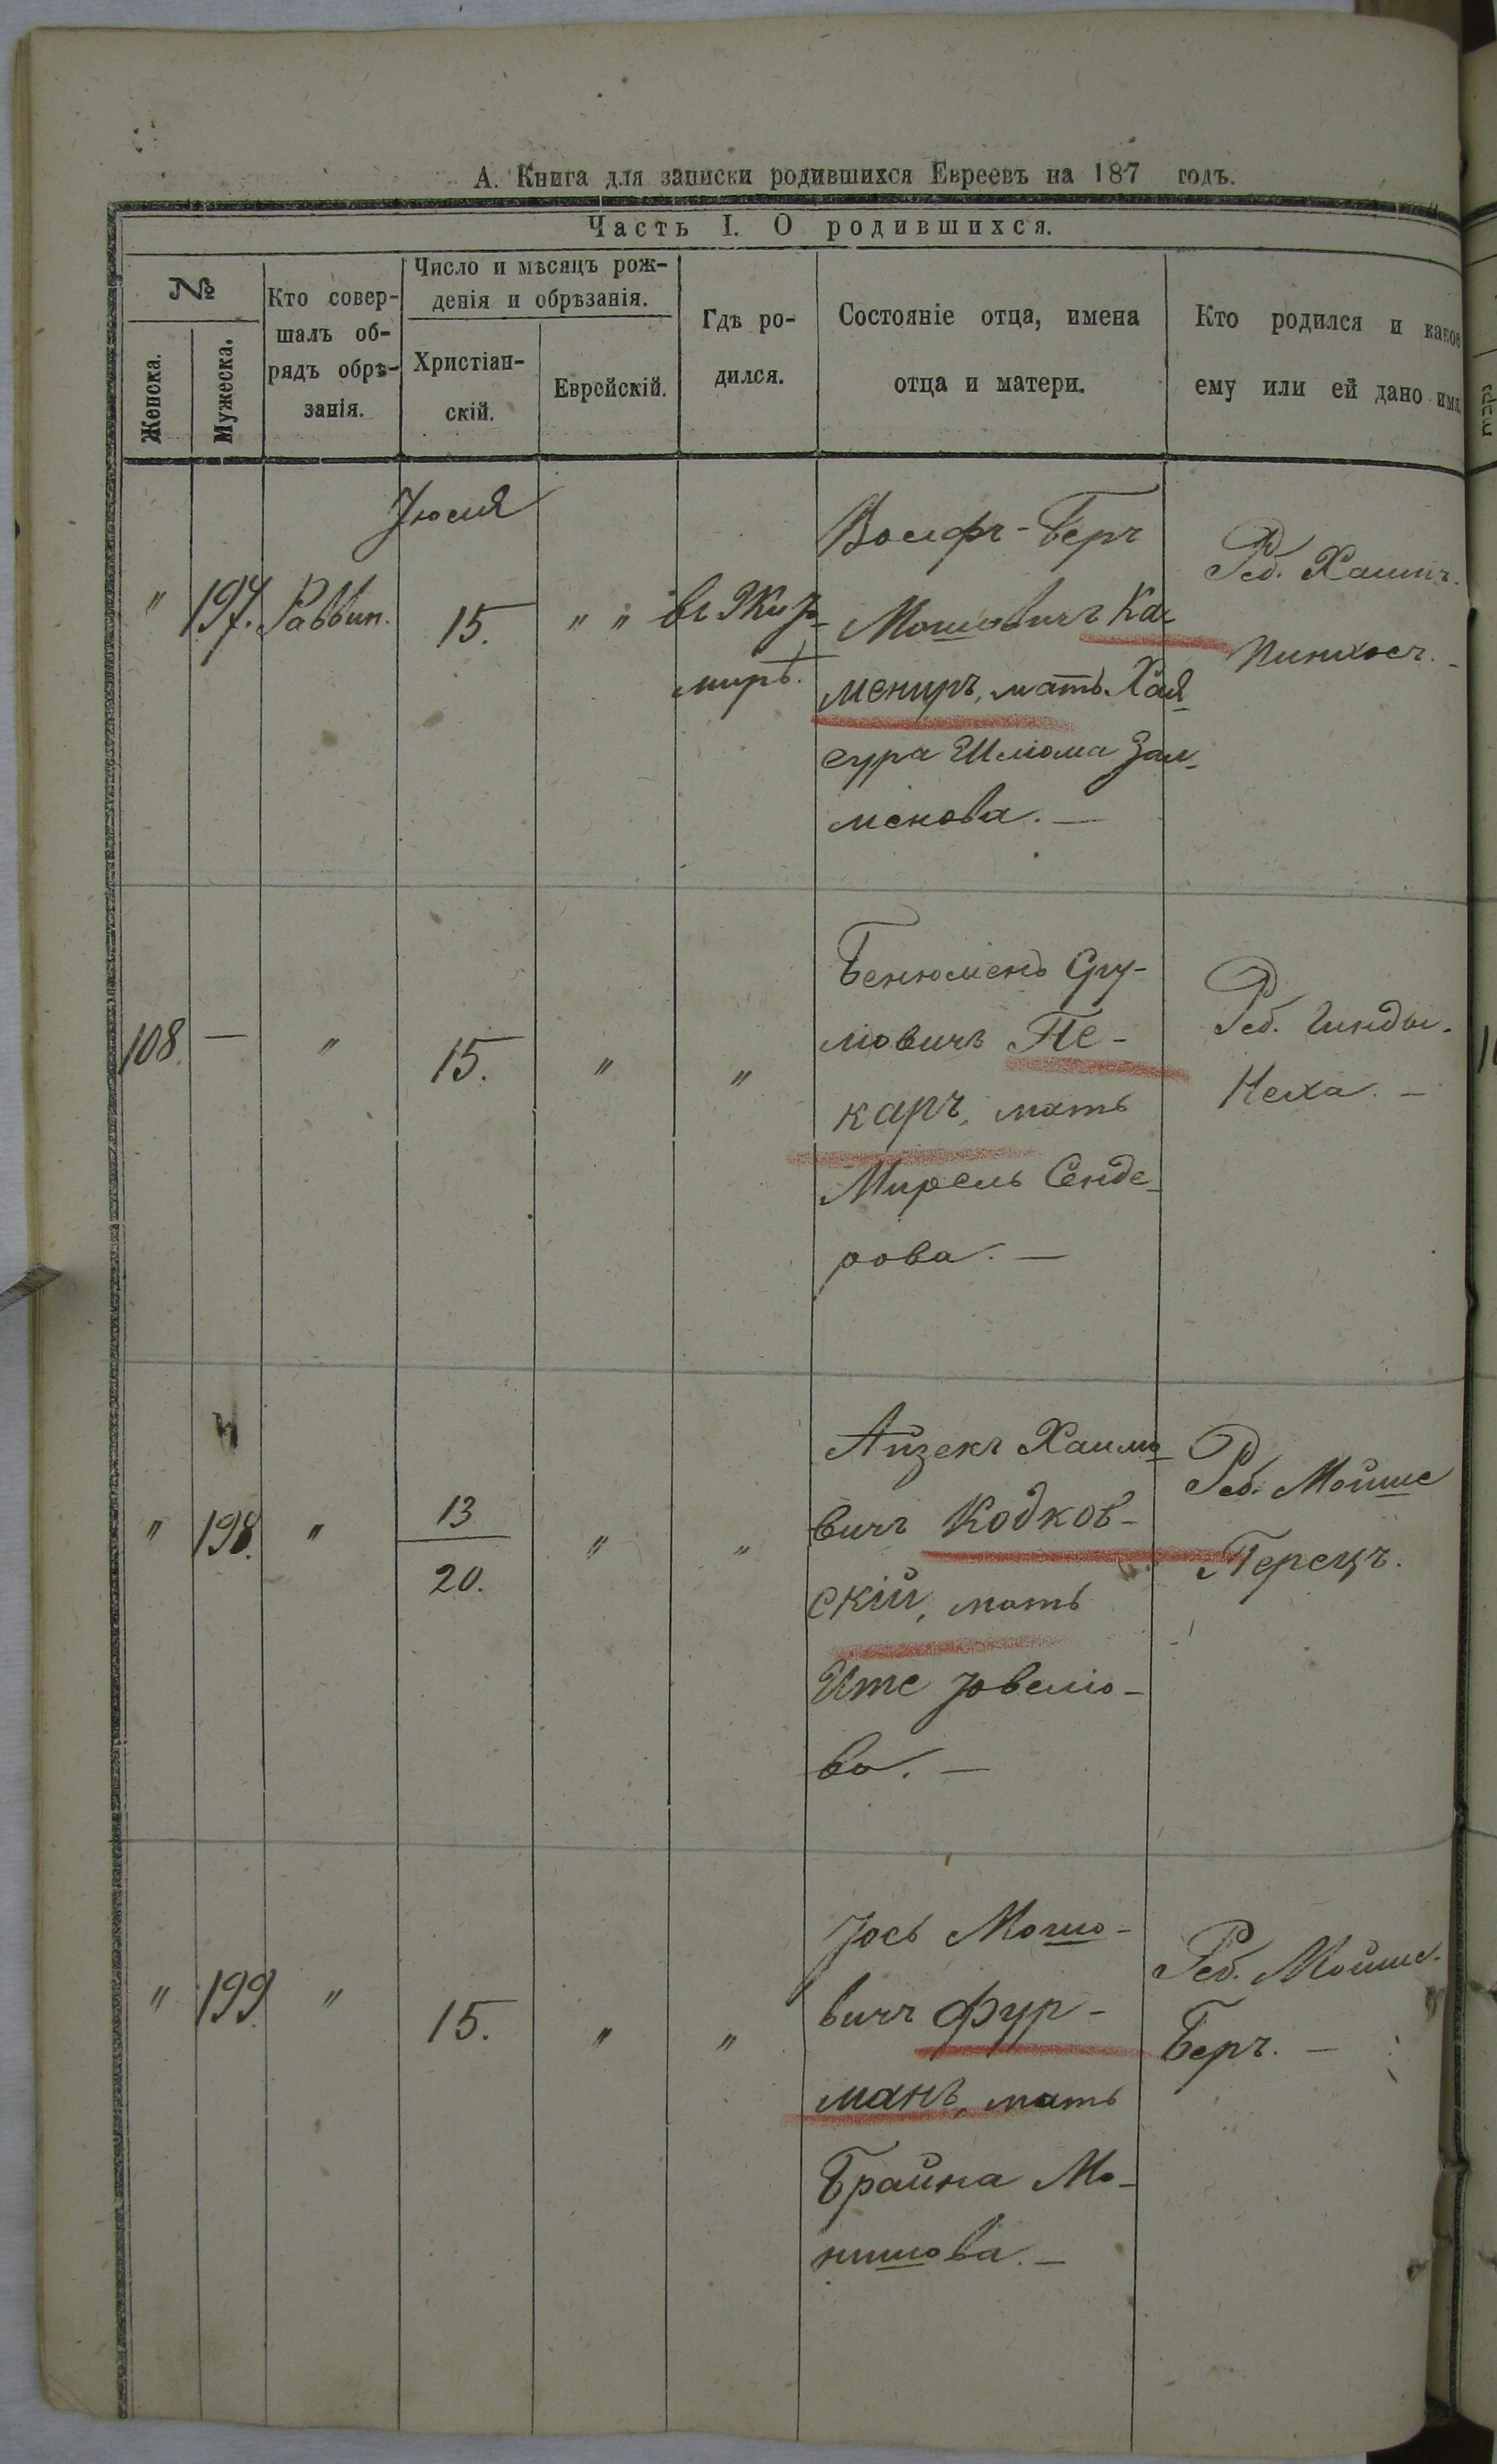 А. Книга для записки родившихся Евреевъ на 187 годъ.
Часть I. О родившихся.
№
Женска.
Мужеска.
Кто совер-
шалъ об-
рядъ обрѣ-
занія.
Число и мѣсяцъ рож-
денія и обрѣзанія.
Христіан-
скій.
Еврейскій.
Гдѣ ро-
дился.
Состояніе отца, имена
отца и матери.
Кто родился и какое
ему или ей дано имя.
Іюля
" 197. Раввин. 15. " "
въ Жито-
мирѣ.
Вольфъ-Беръ
Мошовичъ Ка-
мениръ, мать Хая
сура Шліома Зал-
менова. —
Реб. Хаимъ.
Пинхосъ. -
108. — " 15. " "
Бенюменъ Сру-
ліовичъ Пе-
каръ, мать
Мирель Сенде-
рова. —
Реб. Гинды.
Неха. -
" 198. " 13 " "
20.
Айзекъ Хаимо-
вичъ Кодков-
скій, мать
Ите Іовеліо-
ва. —
Реб. Мойше
Перецъ.
" 199. " 15. " "
Іось Мошо-
вичъ Фур-
манъ, мать
Брайна Мо-
нишова. —
Реб. Мойше.
Беръ. —